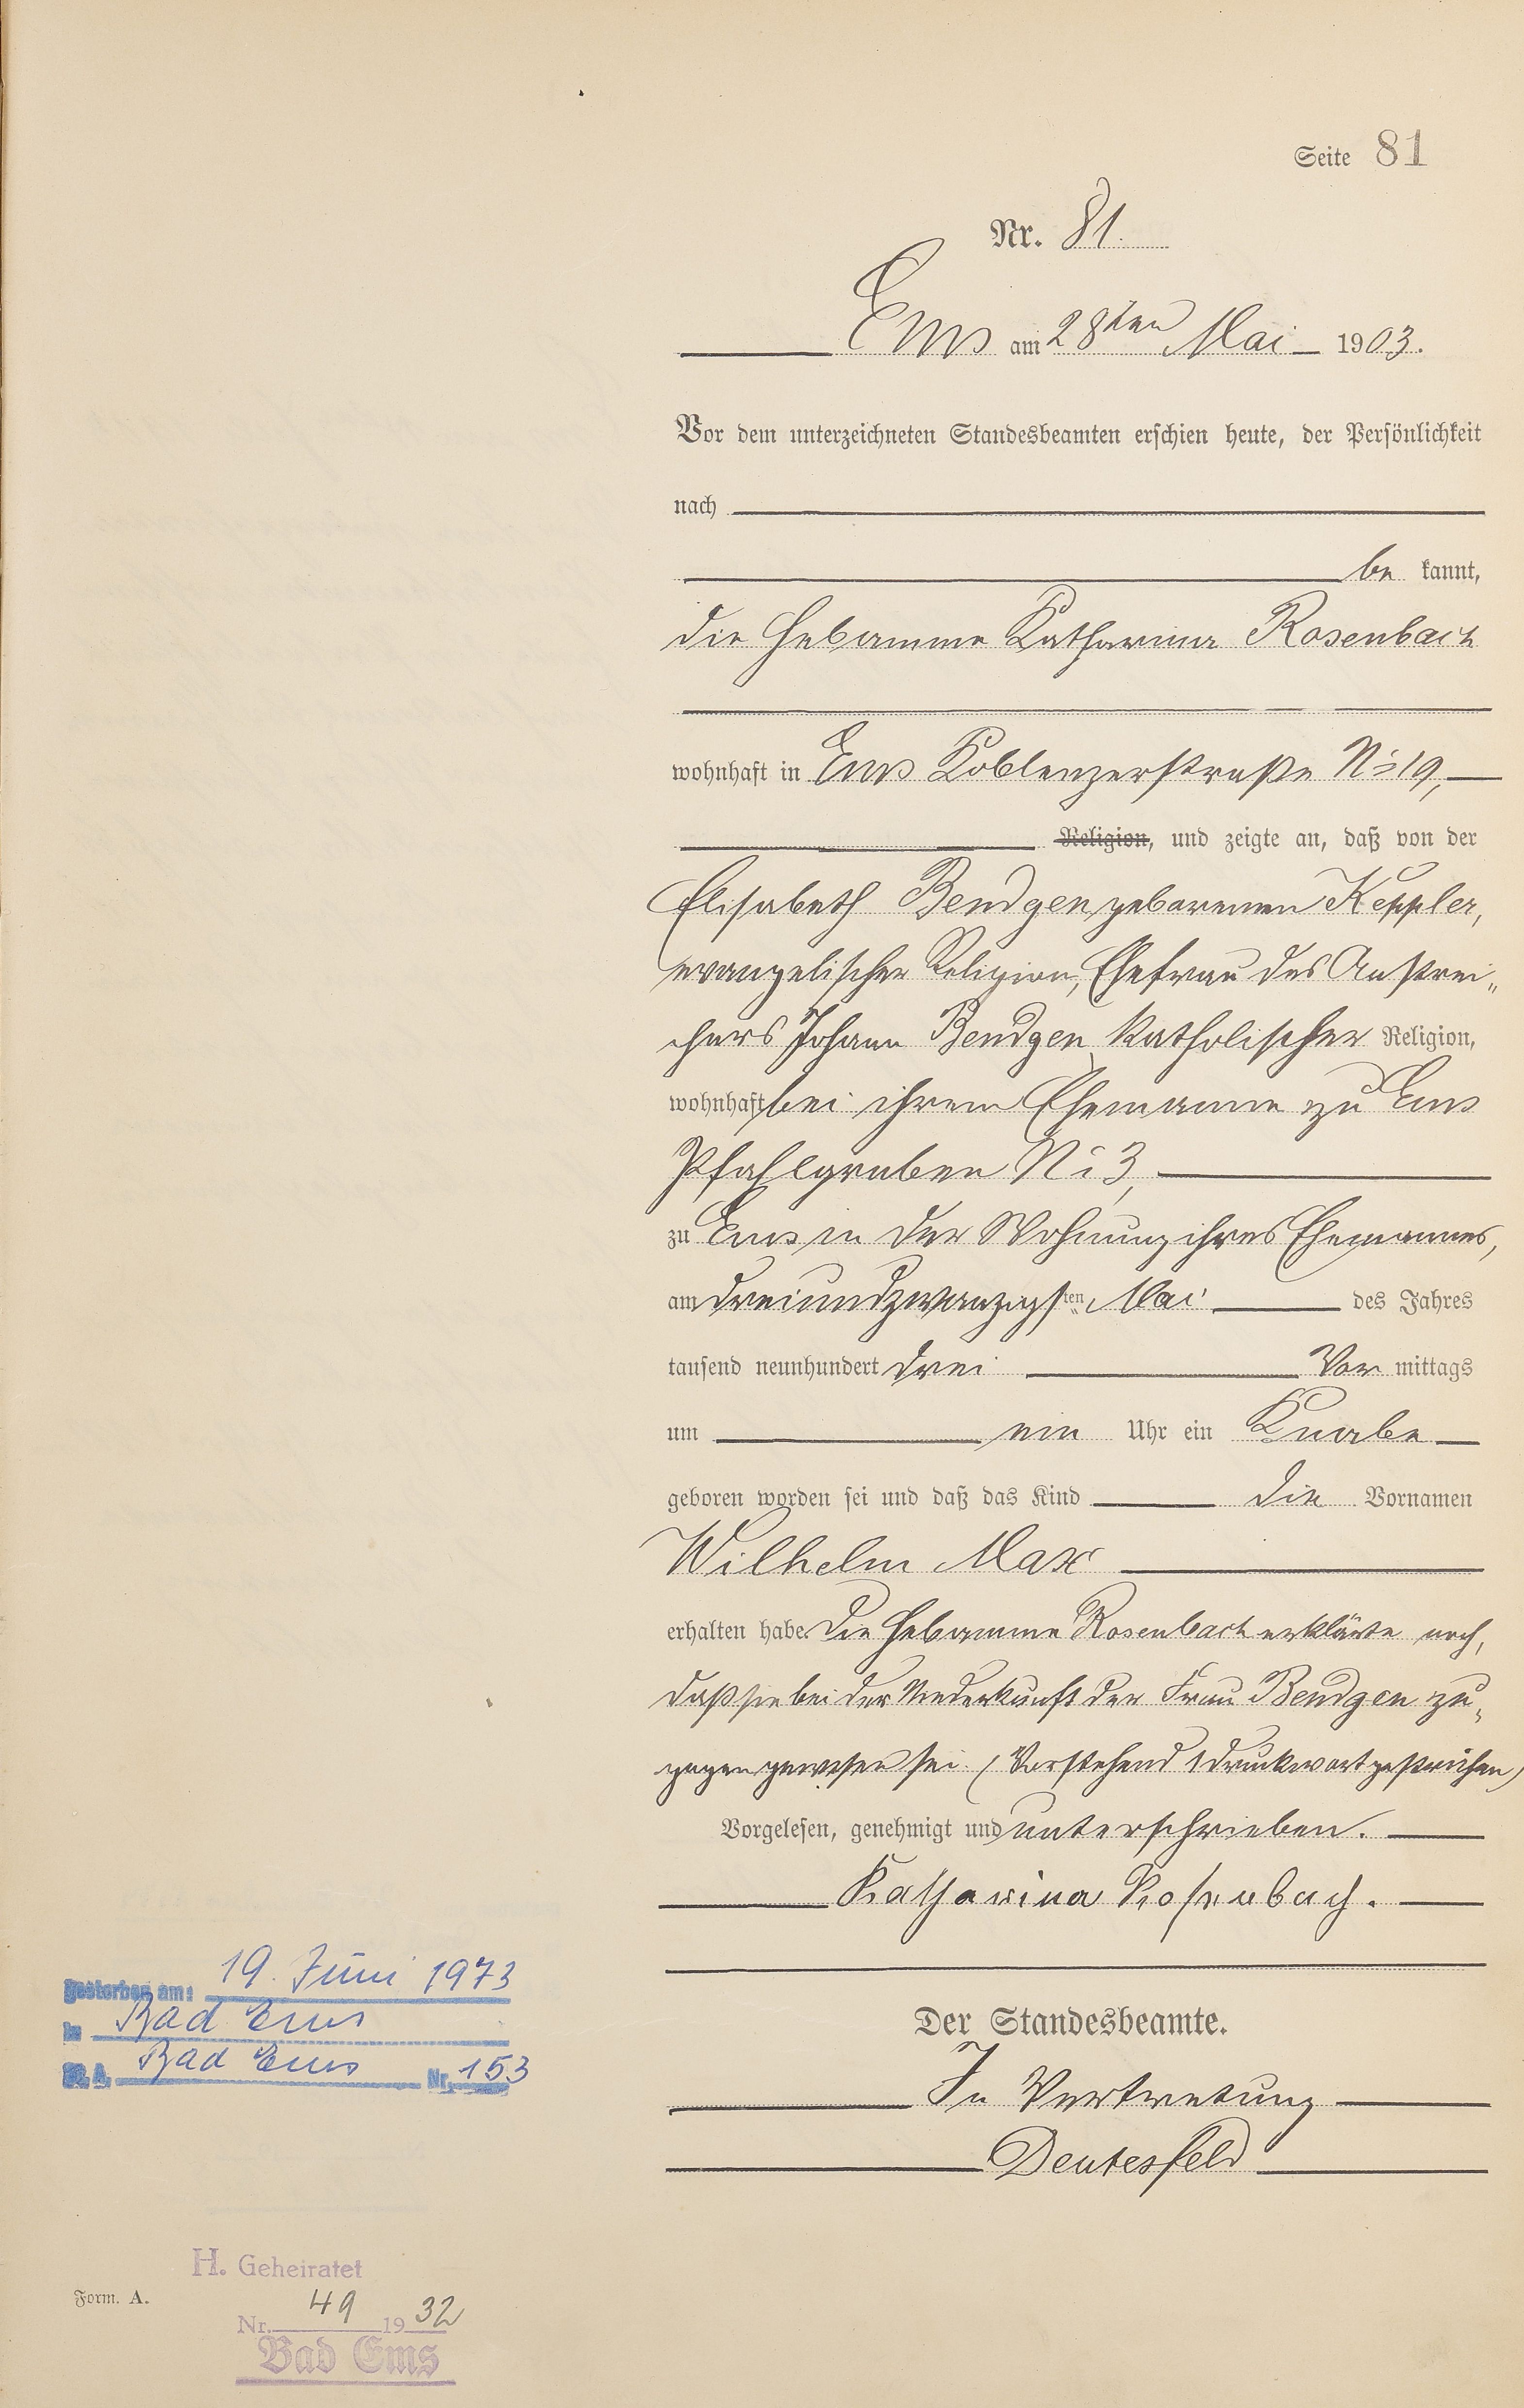 Seite 81
Nr. 81.
Ems am 28ten Mai 1903.
Vor dem unterzeichneten Standesbeamten erschien heute, der Persönlichkeit
nach
be kannt,
die Hebamme Katharina Rosenbach
wohnhaft in Ems Koblenzerstraße No 19,
Religion, und zeigte an, daß von der
Elisabeth Bendgen geborenen Keppler,
evangelischer Religion, Ehefrau des Anstrei„
chers Johann Bendgen, katholischer Religion,
wohnhaft bei ihrem Ehemanne zu Ems
Pfahlgraben No 3,
zu Ems in der Wohnung ihres Ehemannes,
am dreiundzwanzigsten Mai des Jahres
tausend neunhundert drei Vor mittags
um ein Uhr ein Knabe
geboren worden sei und daß das Kind die Vornamen
Wilhelm Max
erhalten habe. Die Hebamme Rosenbach erklärte noch,
daß sie bei der Niederkunft der Frau Bendgen zu„
gegen gewesen sei. (Vorstehend 1 Druckwort gestrichen)
Vorgelesen, genehmigt und unterschrieben.
Katharina Rosenbach.
Der Standesbeamte.
In Vertretung
Deutesfeld
gestorben am: 19. Juni 1973
in Bad Ems
St. A. Bad Ems Nr. 153
H. Geheiratet
Form. A.
Nr. 49 1932
Bad Ems